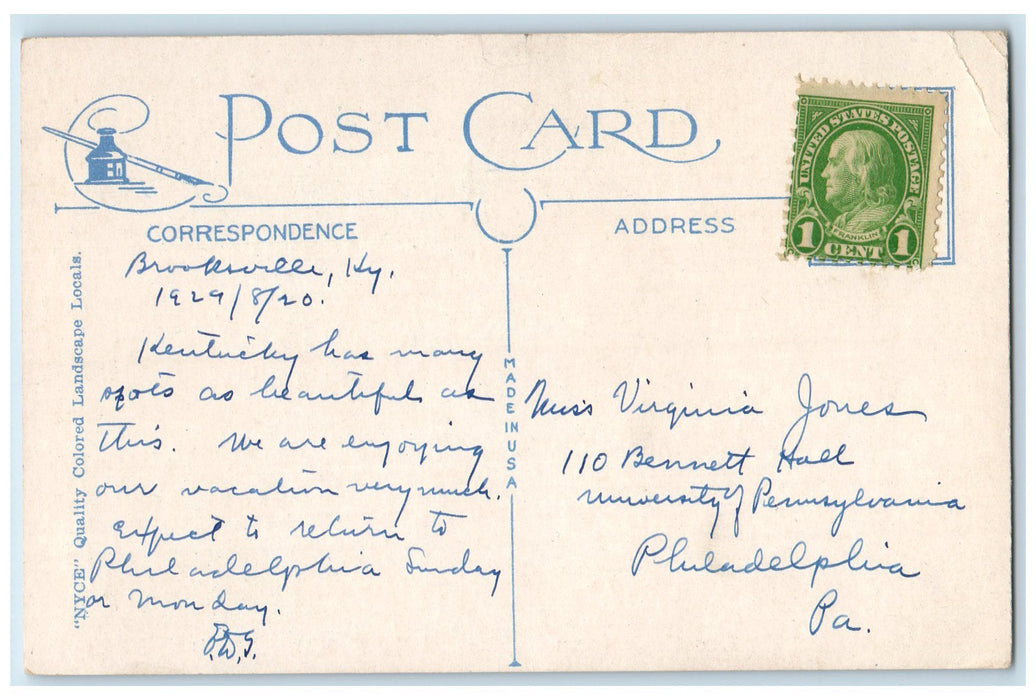 POST CARD
UNITED STATES POSTAGE
FRANKLIN
1 CENT 1
CORRESPONDENCE
ADDRESS
"NYCE" Quality Colored Landscape Locals.
MADE IN USA
Brooksville, Ky.
1929/8/20.
Kentucky has many
spots as beautiful as
this. We are enjoying
our vacation very much.
Expect to return to
Philadelphia Sunday
or Monday.
Miss Virginia Jones
110 Bennett Hall
University of Pennsylvania
Philadelphia
Pa.